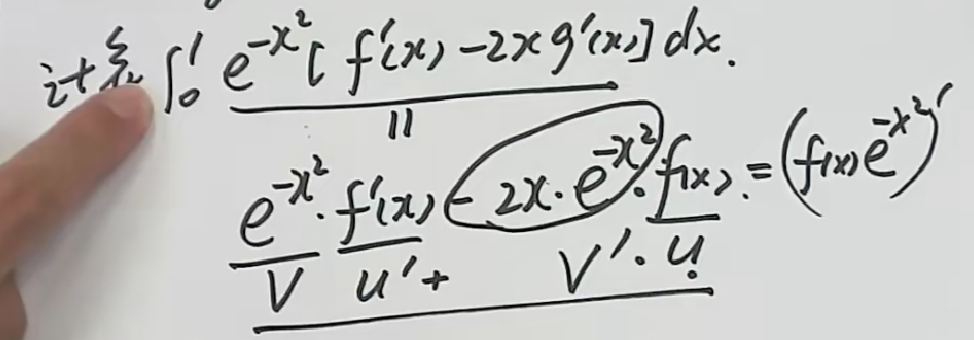 计算 ∫₀¹ e^{-x²}[f'(x)-2xg'(x)]dx.
=
e^{-x²}·f'(x)-2x·e^{-x²}·f(x).=(f(x)e^{-x²})'
V u'+ V'·u